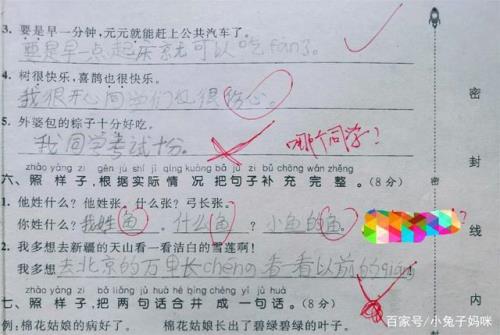 3. 要是早一分钟，元元就能赶上公共汽车了。
要是早一点起床就可以吃fàn了。
4. 树很快乐，喜鹊也很快乐。
我很开心同学们也很开心。
5. 外婆包的粽子十分好吃。
我同学考试十分。
哪个同学？
zhào yàng zi gēn jù shí jì qíng kuàng bǎ jù zi bǔ chōng wán zhěng
六、照样子，根据实际情况把句子补充完整。（8分）
1. 他姓什么？他姓张。什么张？弓长张。
你姓什么？我姓鱼。什么鱼？小鱼的鱼。
2. 我多想去新疆的天山看一看洁白的雪莲啊！
我多想去北京的万里长chéng看一看以前的
zhào yàng zi bǎ liǎng jù huà hé bìng chéng yí jù huà
七、照样子，把两句话合并成一句话。（8分）
例：棉花姑娘的病好了。 棉花姑娘长出了碧绿碧绿的叶子。
密
封
线
内
百家号/小兔子妈咪